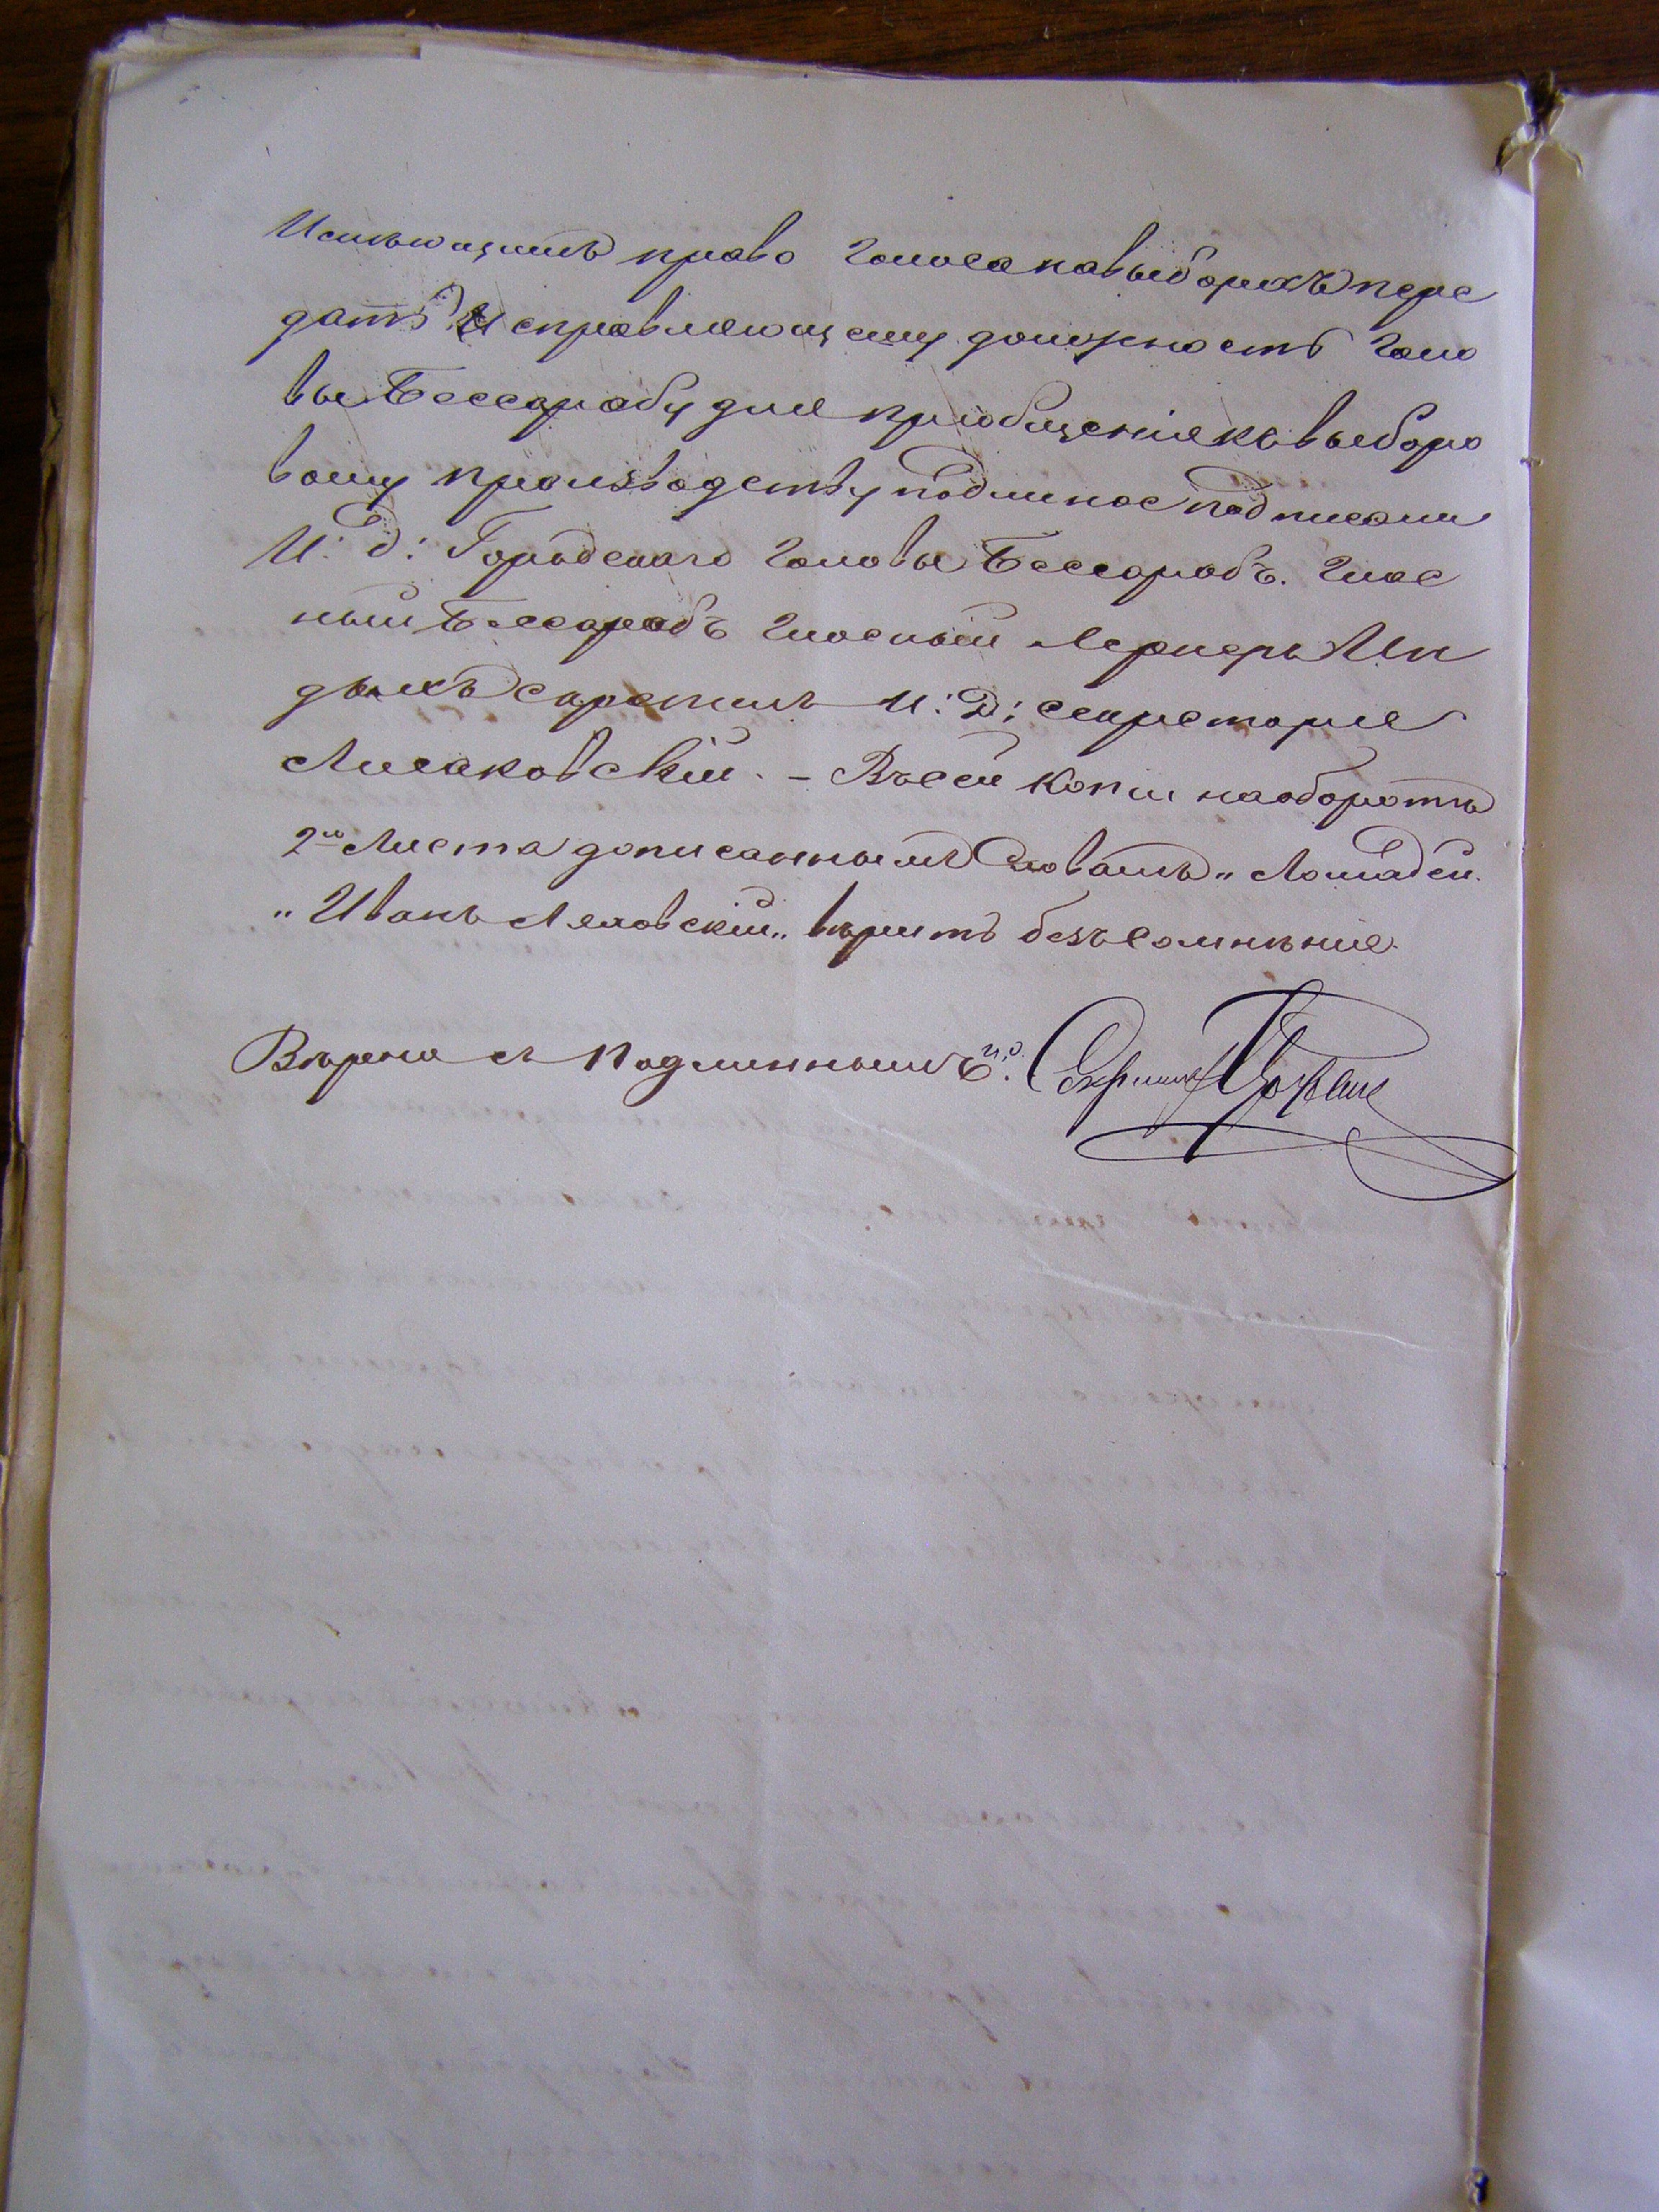 Имѣющимъ право голоса на выборахъ пере
дать Исправляющему должность Голо
вы Бессарабу для пріобщенія къ выборо
вому производству подлиное подписали
И: д: Городскаго Головы Бессарабъ. Глас
ный Бессарабъ Гласный Лернеръ
скрепилъ И: Д: Секретаря
Лисаковскій. – Въ сей копіи на оборотѣ
2го Листа дописаннымъ Словамъ „Лошадей.
„Иванъ Ляховскій„ вѣрить безъ сомнѣнія.
Вѣрна съ Подлиннымъ И.д. Секретаря